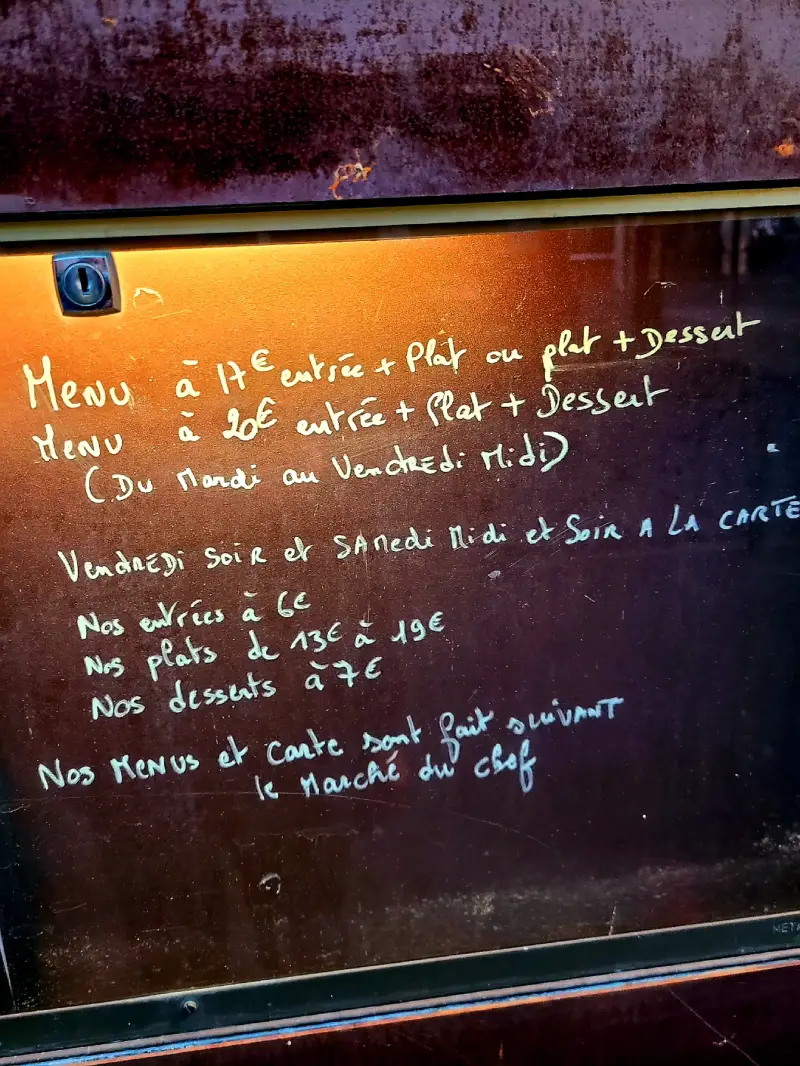 Menu à 17€ entrée + Plat ou plat + Dessert
Menu à 20€ entrée + Plat + Dessert
(Du Mardi au Vendredi Midi)
Vendredi soir et Samedi Midi et Soir A LA CARTE
Nos entrées à 6€
Nos plats de 13€ à 19€
Nos desserts à 7€
Nos Menus et carte sont fait suivant
le Marché du chef